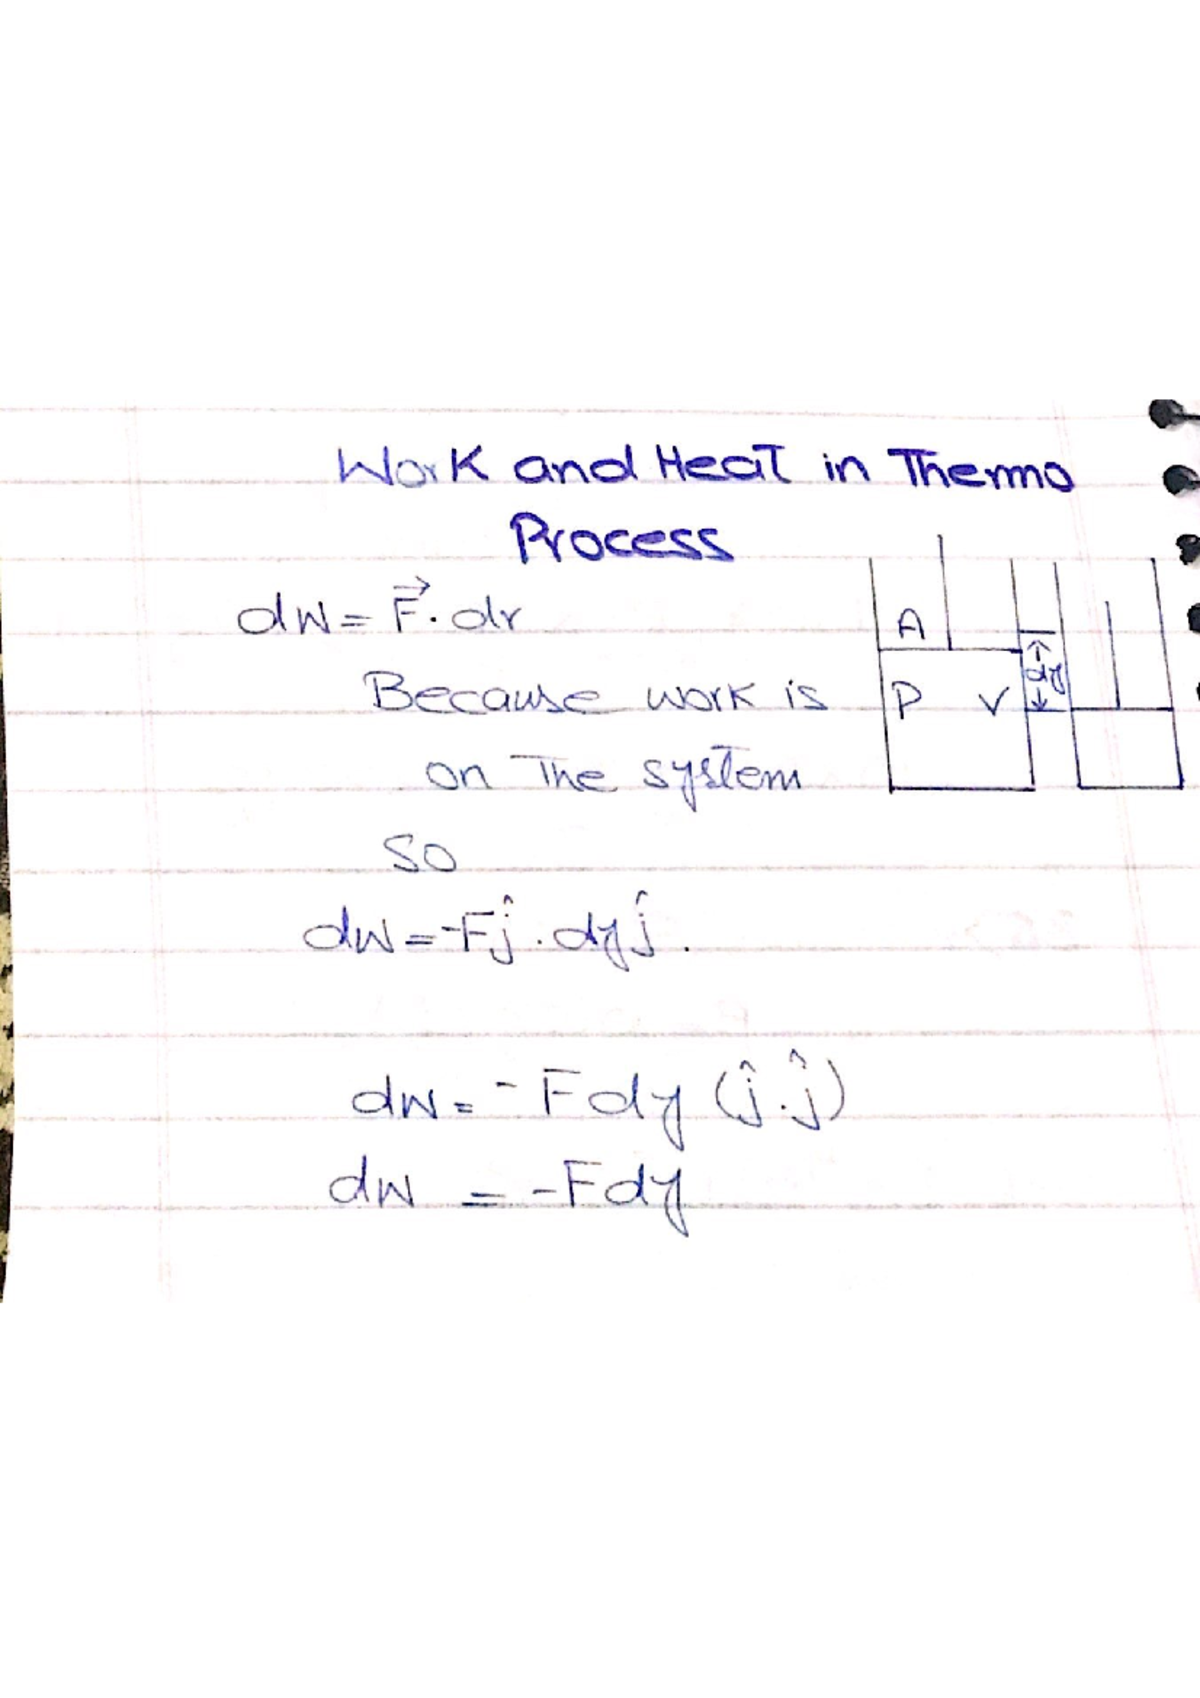 Work and Heat in Thermo
Process
dW = F⃗. dr
Because work is
on The system
so
dW = -Fĵ . dyĵ .
dW = - Fdy (ĵ.ĵ)
dW = -Fdy
A
P V
dy